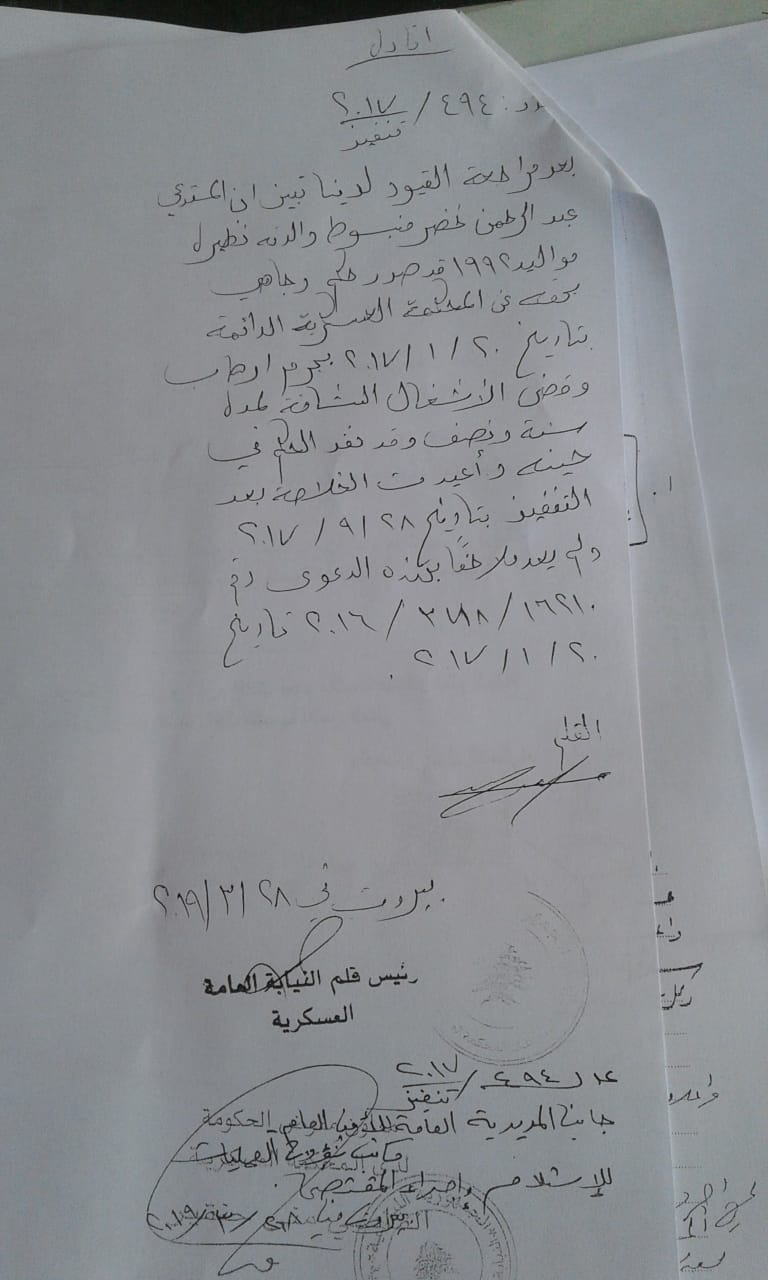 افادة
عدد: ٤٩٤ / ٢٠١٧
تنفيذ
بعد مراجعة القيود لدينا تبين ان المستدعي
عبد الرحمن خضر منبوط والدته نظيرة
مواليد ١٩٩٢ قد صدر حكم وجاهي
بحقه عن المحكمة العسكرية الدائمة
بتاريخ ٢٠ / ١ / ٢٠١٧ بجرم ارهاب
وقضى الأشغال الشاقة لمدة
سنة ونصف وقد نفذ الحكم في
حينه وأعيدت الخلاصة بعد
التنفيذ بتاريخ ٢٨ / ٩ / ٢٠١٧
ولم يعد ملاحقاً بهذه الدعوى رقم
١٦٢١٠ / / ٢٠١٦ تاريخ
٢٠ / ١ / ٢٠١٧ .
القلم
بيروت في ٢٨ / ٣ / ٢٠١٩
رئيس قلم النيابة العامة
العسكرية
عدد ٤٩٤ / ٢٠١٧
تنفيذ
جانب المديرية العامة
للإستلام واجراء المقتضى